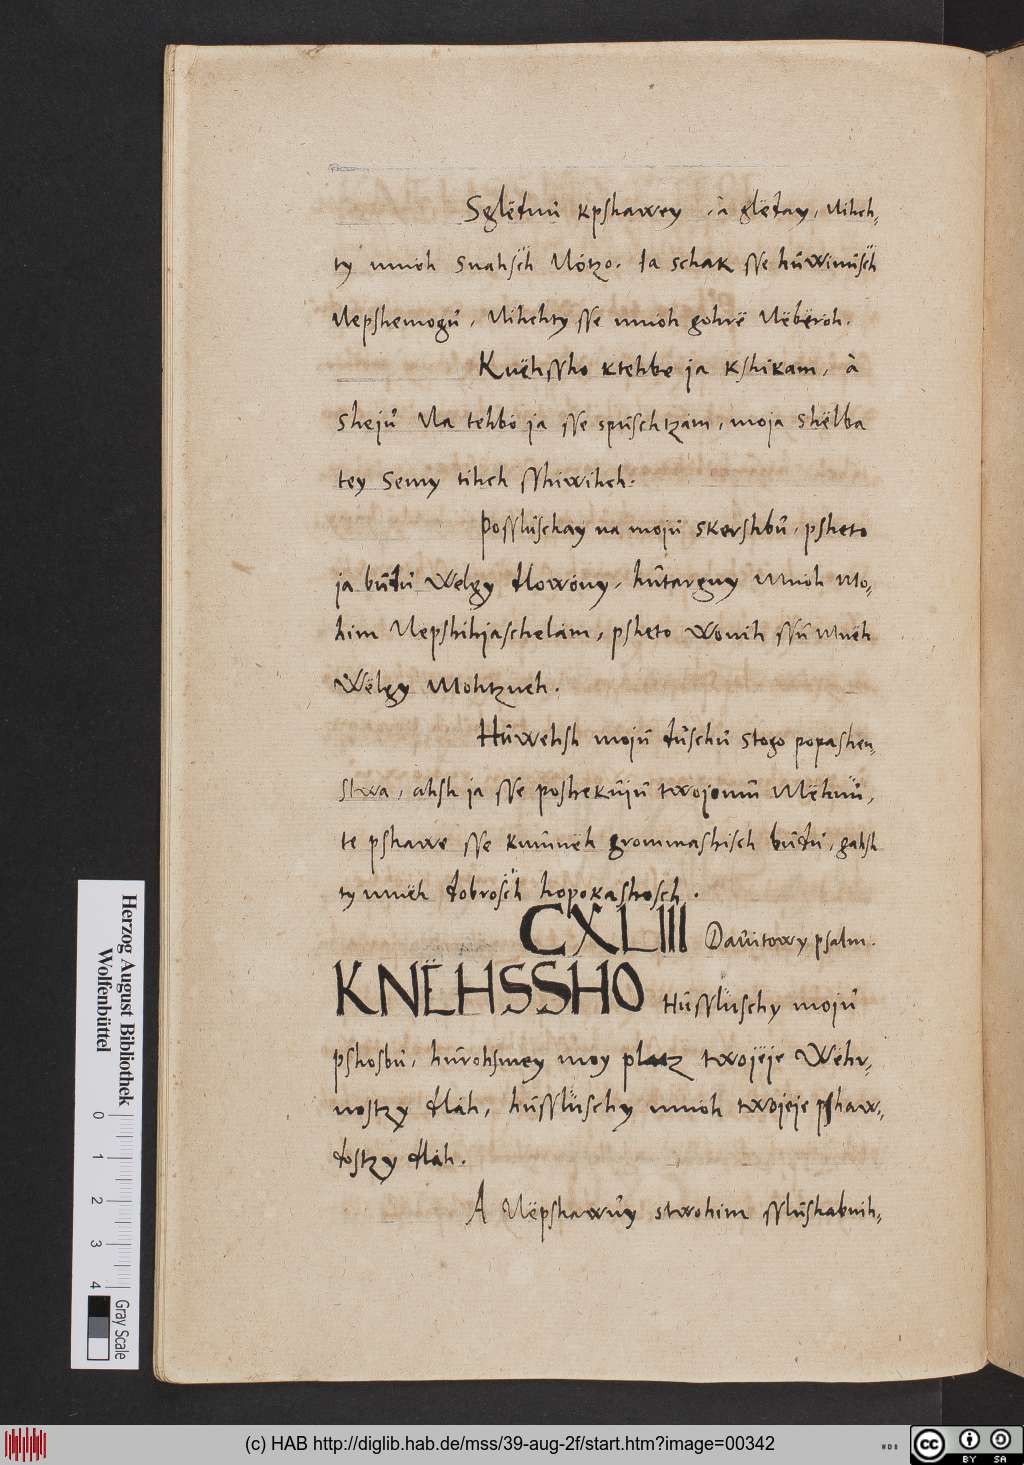 Sglëdnu kpshawey, à glëday, Nihch-
ty mnoh snahsch Nótzo. Ja schak sse hůwinůsch
Nepshemogů, Nihchty sse mnoh gohrë Nëbëroh.
Knëhssho ktehbe ja kshikam, à
shejů Na tehbó ja sse spůschtzam, moja shëlba
tey Semy tihch sshiwihch.
Posslůschay na mojů skershbů, psheto
ja bůdů Welgy dlowóny, hůtargny Mnoh Mo-
him Nepshihjaschelam, psheto Wonih ssů Mnëh
Wëlgy Mohtzneh.
Hůwehsh mojů důschů stogo popashen-
stwa, ahsh ja sse poshekůjů twojomů Mëhnů,
te pshawe sse kmůnëh grommashisch bůdů, gahsh
ty mnëh dobrosch hopokashosch.
CXLIII Dauitowy psalm.
KNËHSSHO Hůsslůschy mojů
pshosbů, hůrohsmey moy platz twojëje Wëhr-
nostzy dlah, hůsslůschy mnoh twojeje pshaw-
dostzy dlah.
A Nëpshawůy stwohim sslůshabnih-
Herzog August Bibliothek
Wolfenbüttel
0 1 2 3 4
Gray Scale
(c) HAB http://diglib.hab.de/mss/39-aug-2f/start.htm?image=00342
WDB
cc BY SA